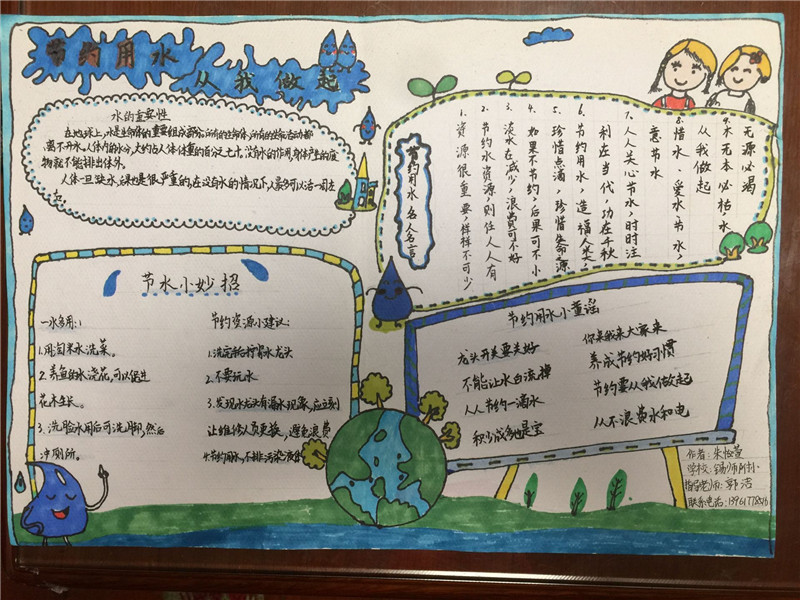 节约用水
从我做起
水的重要性
在地球上,水是生命体的重要组成部分,所有的生命体,所有的生命活动都
离不开水。人体内的水分,大约占人体体重的百分之七十,没有水的作用,身体产生的废
物就不能排出体外。
人体一旦缺水,后果也是很严重的,在没有水的情况下,人最多可以活一周左
右
节约用水 名人名言
1、资源很重要,样样不可少
2、节约水资源,则任人人有
3、淡水在减少,浪费可不好
4、如果不节约,后果可不小
5、珍惜点滴,珍惜生命源
6、节约用水,造福人类,
利在当代,功在千秋
7、人人关心节水,时时注
意节水
8、惜水、爱水、节水,
从我做起
9、木无本必枯,水
无源必竭
节水小妙招
一水多用:
1.用淘米水洗菜。
2.养鱼的水浇花,可以促进
花木生长。
3.洗脸水用后可洗脚,然后
冲厕所。
节约资源小建议:
1.洗完手后拧紧水龙头
2.不要玩水
3.发现水龙头有漏水现象,应立刻
让维修人员更换,避免浪费
4.节约用水,不排污染液体
节约用水小童谣
龙头开关要关好
不能让水白流掉
人人节约一滴水
积少成多也是宝
你来我来大家来
养成节约好习惯
节约要从我做起
从不浪费水和电
作者:朱怡萱
学校:锡师附小
指导老师:郭洁
联系电话: